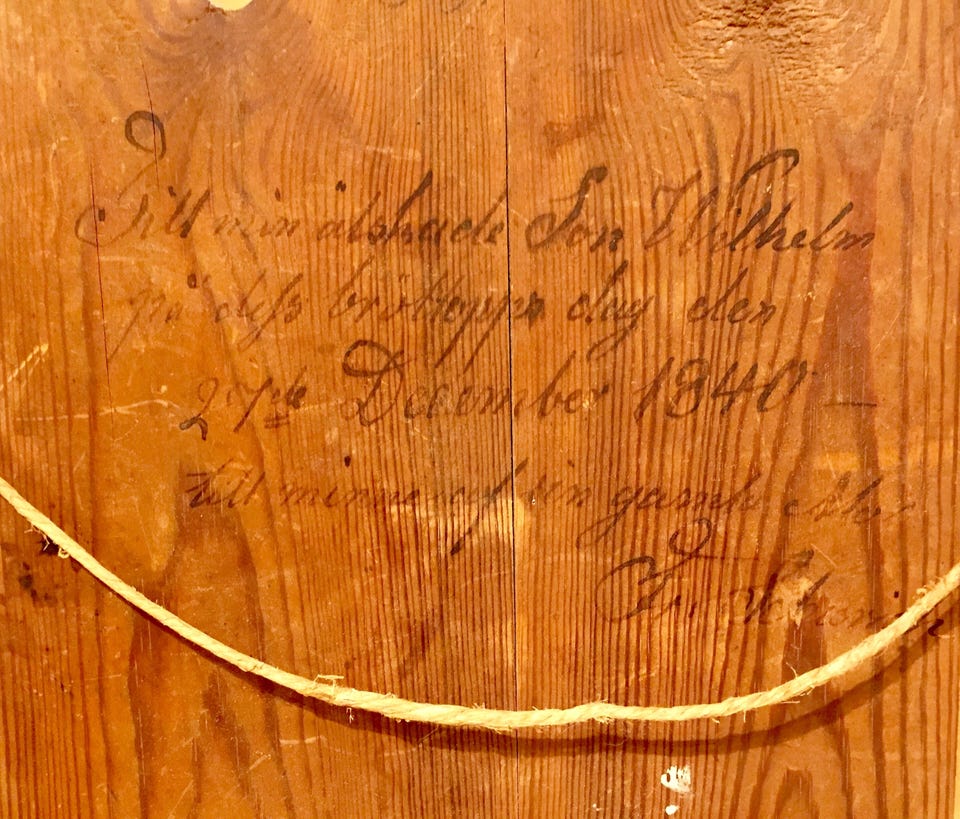 Till min älskade Son Wilhelm
på dess bröllopps dag den
27de December 1840 —
till minne af sin gamla